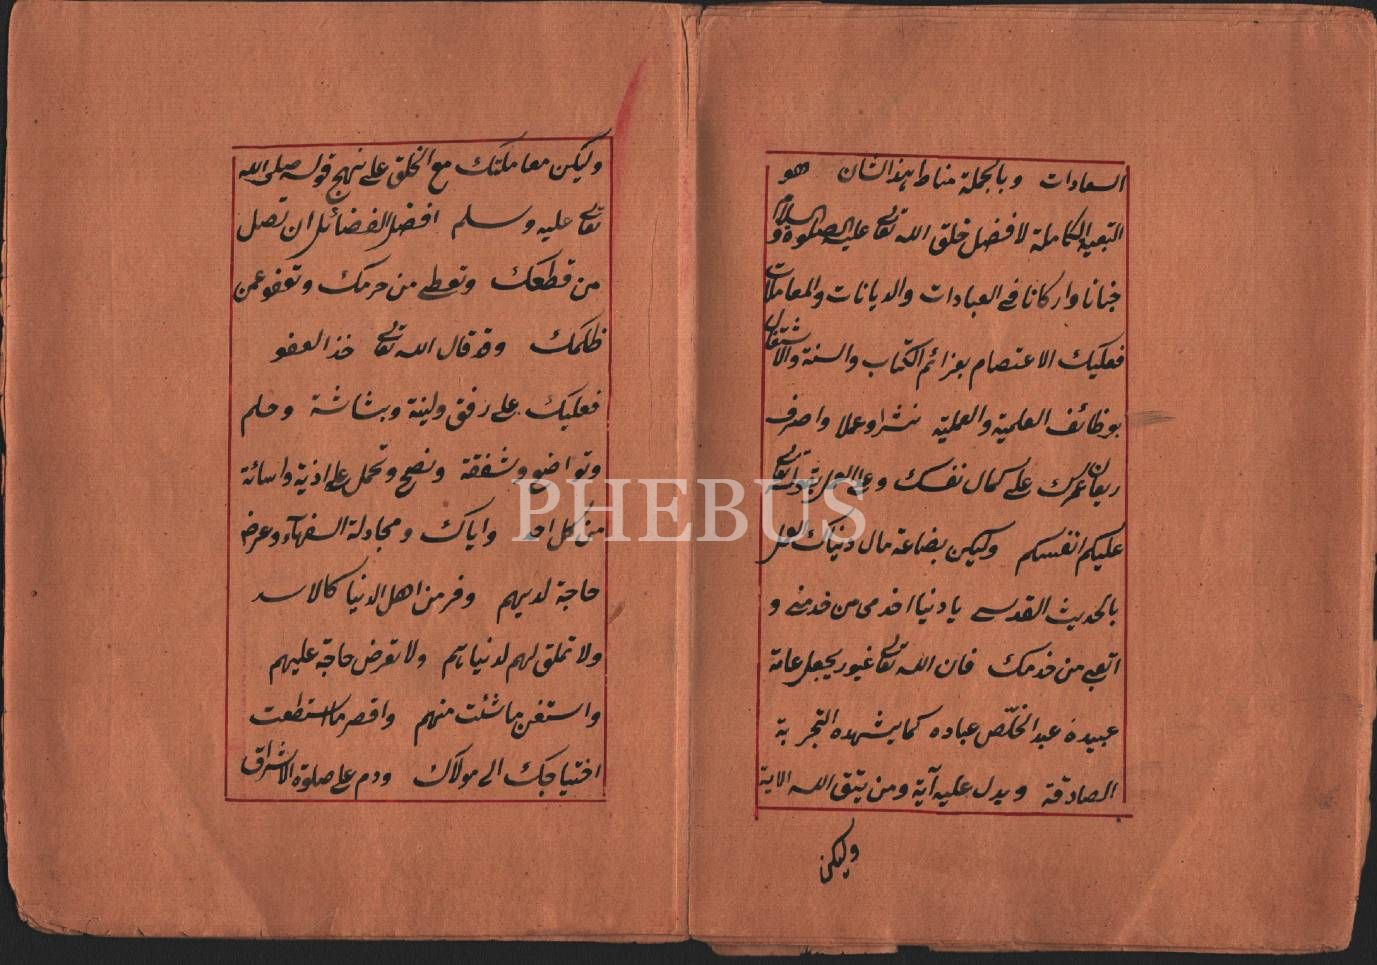 السعادات وبالجملة مناط هذا الشان هو
التبعية الكاملة لافضل خلق الله تعالى عليه الصلوة والسلام
جنانا واركانا في العبادات والديانات والمعاملات
فعليك الاعتصام بعزائم الكتاب والسنة والاشتغال
بوظائف العلمية والعملية نشرا وعملا واصرف
ريعان عمرك على كمال نفسك وعلى العمل بقوله تعالى
عليكم انفسكم وليكن بضاعة مال دنياك العمل
بالحديث القدسي يا دنيا اخدمى من خدمني و
اتعبي من خدمك فان الله تعالى غيور يجعل عامة
عبيده عبد الخلّص عباده كما يشهده التجربة
الصادقة ويدل عليه آية ومن يتق الله الاية
وليكن
وليكن معاملتك مع الخلق على نهج قوله صلى الله
تعالى عليه وسلم افضل الفضائل ان تصل
من قطعك وتعطى من حرمك وتعفو عمن
ظلمك وقد قال الله تعالى خذ العفو
فعليك على رفق ولينة وبشاشة وحلم
وتواضع وشفقة ونصح وتحمل على اذية واسائة
من كل احد واياك ومجادلة السفهآء وعرض
حاجة لديهم وفر من اهل الدنيا كالاسد
ولا تملق لهم لدنياهم ولا تعرض حاجة عليهم
واستغن ما شئت منهم واقصر ما استطعت
احتياجك الى مولاك ودم على صلوة الاشراق
PHEBUS